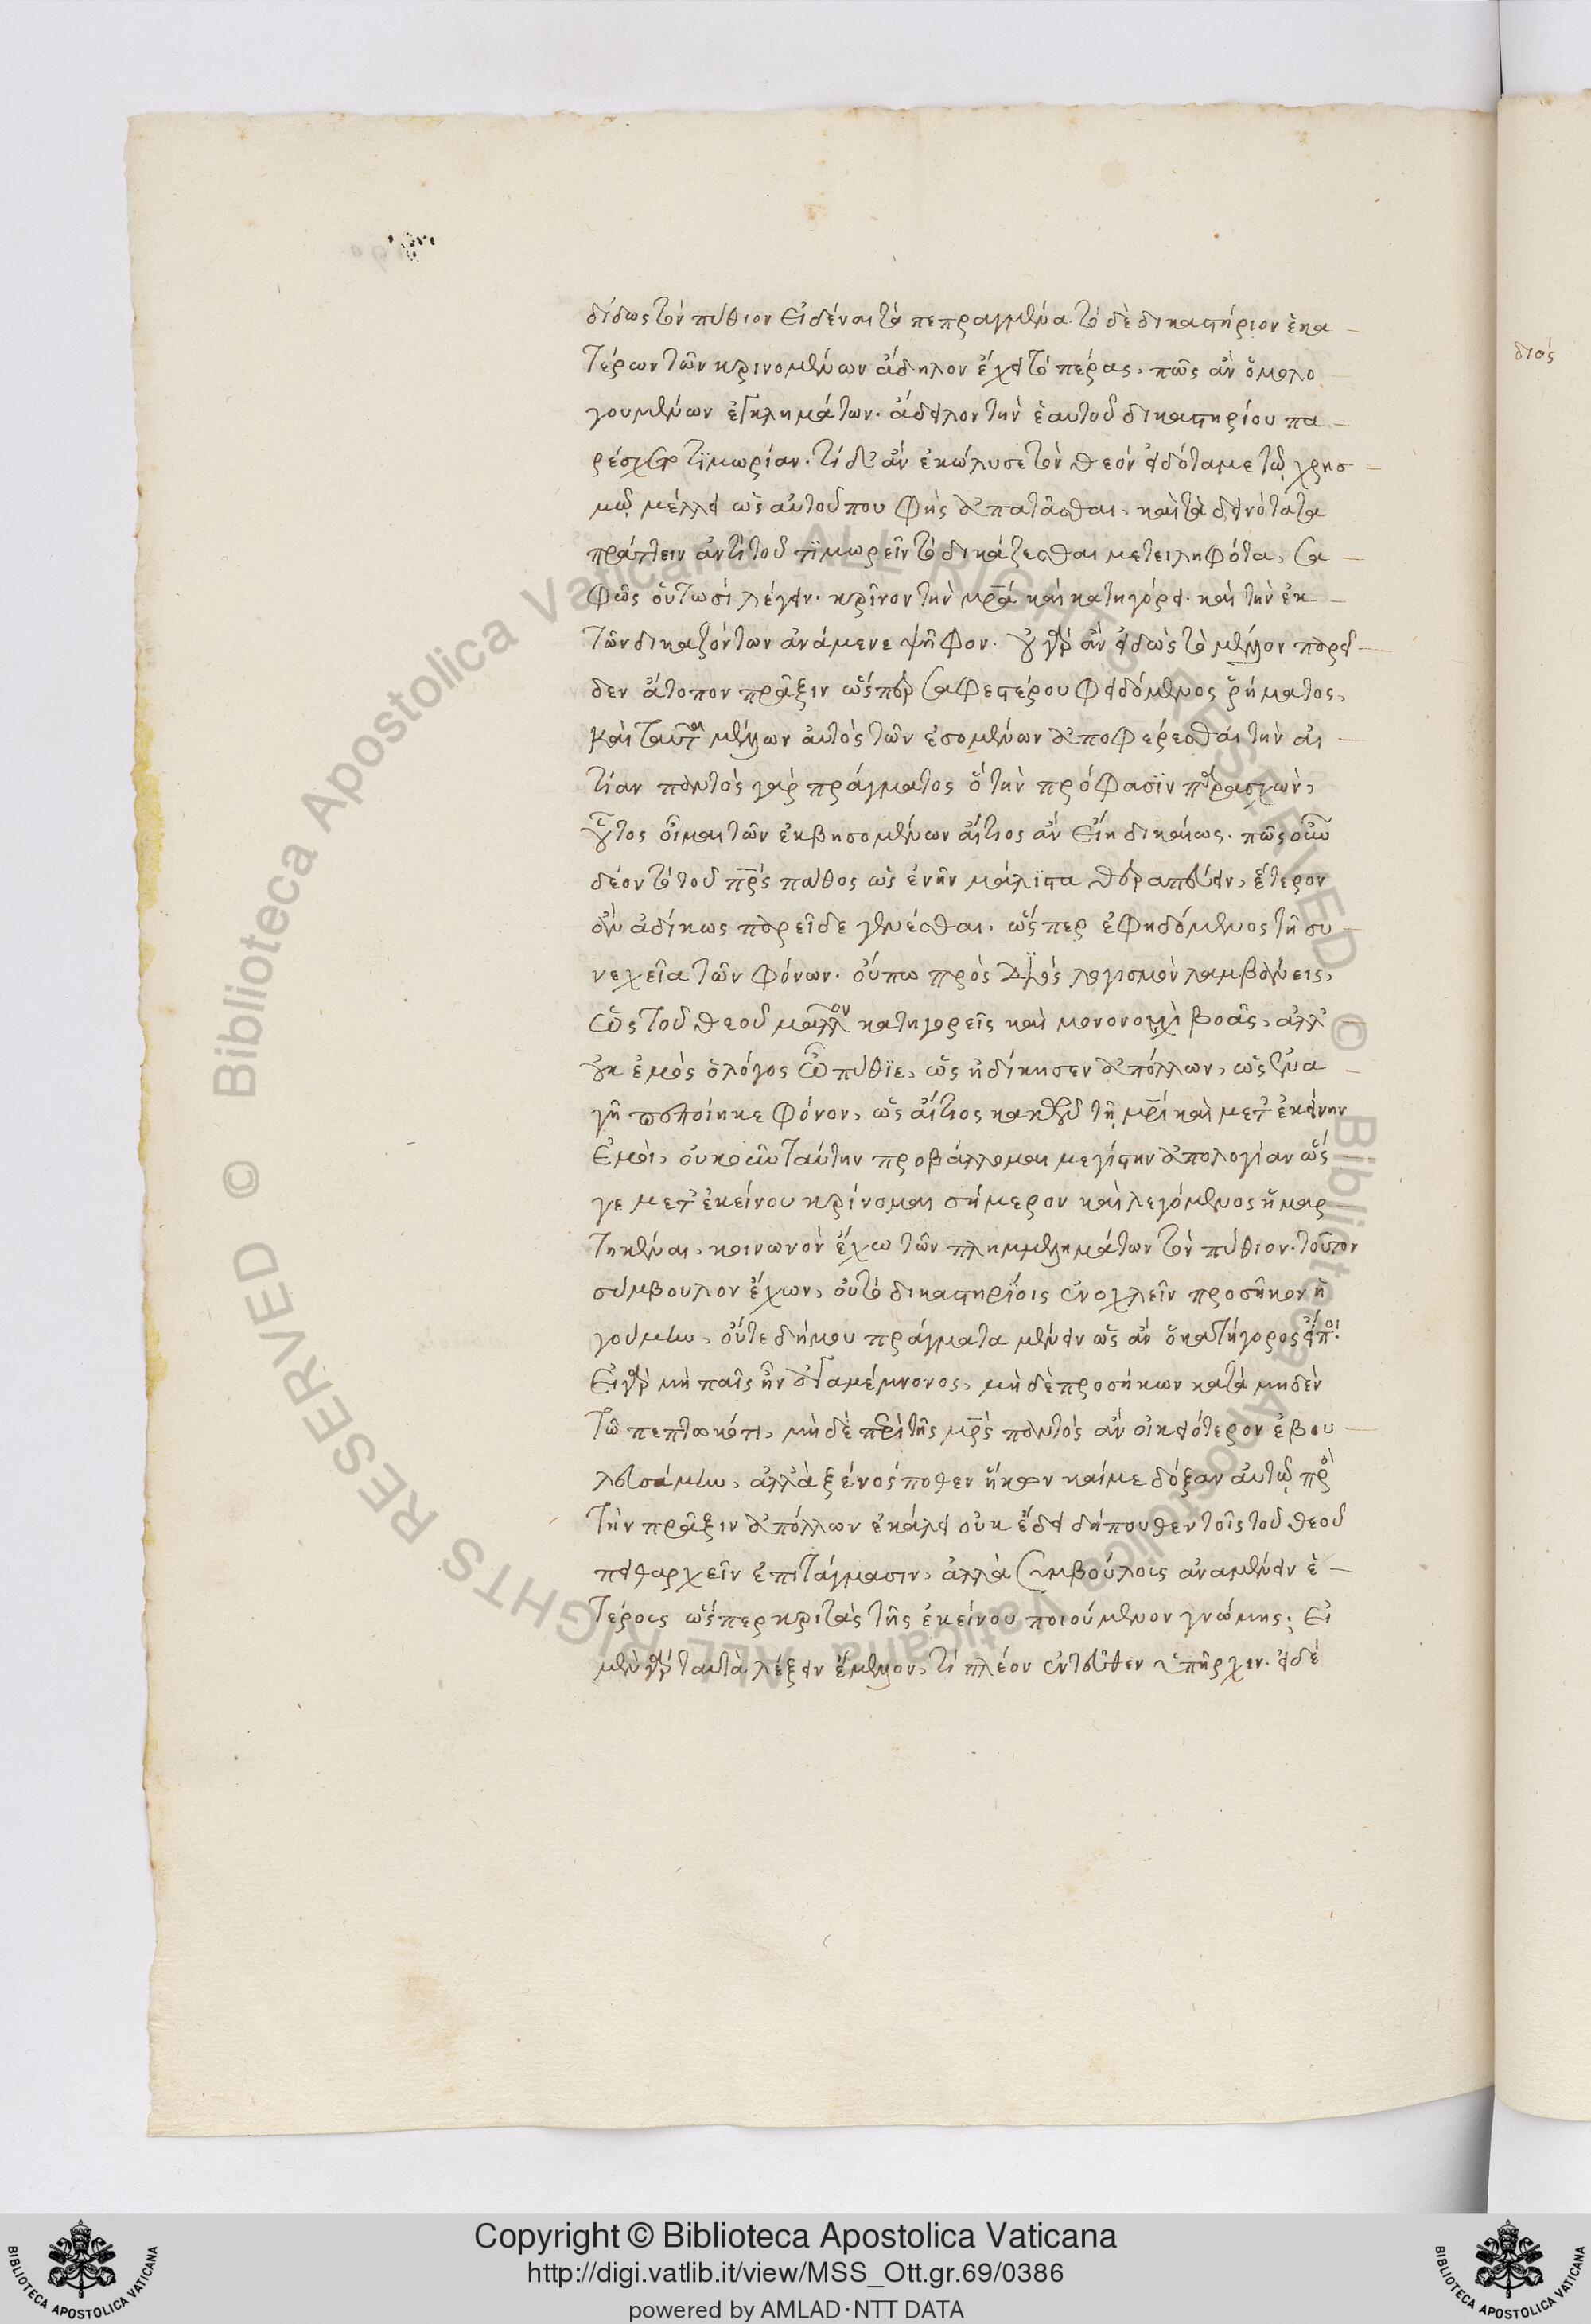 δίδως τὸν πύθιον εἰδέναι τὰ πεπραγμένα. τὸ δὲ δικαστήριον ἑκα
τέρων τῶν κρινομένων ἄδηλον ἔχει τὸ πέρας. πῶς ἂν ὁμολο
γουμένων ἐγκλημάτων. ἄδηλον τὴν ἑαυτοῦ δικαστηρίου πα
ρέσχεν τϊμωρίαν. τί δ' ἂν ἐκώλυσε τὸν θεὸν εἰδότα με τῷ χρησ
μῷ μέλλει ὡς αὐτοῦ που φὴς ἀπατᾶσθαι, καὶ τὰ δεινότατα
πράττειν ἀντὶ τοῦ τϊμωρεῖν τὸ δικάζεσθαι μετειληφότα, σα
φῶς οὑτωσὶ λέγειν. κρῖνον τὴν μρα καὶ κατηγόρει. καὶ τὴν ἐκ
τῶν δικαζόντων ἀνάμενε ψῆφον. οὐ γὰρ ἂν εἰδὼς τὸ μέλλον παρεῖ
δεν ἄτοπον πρᾶξιν ὥσπερ σαφεστέρου φειδόμενος ῥήματος,
καὶ ταῦτα μέλλων αὐτὸς τῶν ἐσομένων ἀποφέρεσθαι τὴν αἰ
τίαν παντὸς γὰρ πράγματος ὁ τὴν πρόφασϊν παρασχὼν,
οὗτος οἶμαι τῶν ἐκβησομένων αἴτιος ἂν εἴη δικαίως. πῶς οὖν
δέον τὸ τοῦ πρς πάθος ὡς ἐνῆν μάλϊστα θεραπεύειν, ἕτερον
οὖν ἀδίκως παρεῖδε γενέσθαι. ὥσπερ ἐφηδόμενος τῇ συ
νεχεῖα τῶν φόνων. οὔπω πρὸς Διὸς λογισμὸν λαμβάνεις,
ὡς τοῦ θεοῦ μᾶλλον κατηγορεῖς καὶ μονονουχὶ βοᾷς, ἀλλ'
οὐκ ἐμὸς ὁ λόγος ὦ πύθϊε, ὡς ἠδίκησεν ἀπόλλων, ὡς ἐνα
γῆ πεποίηκε φόνον, ὡς αἴτιος κακοῦ τῇ μρι καὶ μετ' ἐκείνην
ἐμοὶ, οὐκοῦν ταύτην προβάλλομαι μεγίστην ἀπολογίαν ὥς
γε μετ' ἐκείνου κρίνομαι σήμερον καὶ λεγόμενος ἡμαρ
τηκέναι. κοινωνὸν ἔχω τῶν πλημμελημάτων τὸν πύθιον. τοῦτον
σύμβουλον ἔχων, οὐ τὸ δικαστηρίοις ἐνοχλεῖν προσῆκον ἡ
γούμην, οὔτε δήμου πράγματα μένειν ὡς ἂν ὁ κατήγορος εἴποι.
εἰ γὰρ μὴ παῖς ἦν ἀγαμέμνονος, μὴ δὲ προσήκων κατὰ μηδὲν
τῷ πεπτωκότι, μὴ δὲ περὶ τῆς μρς παντὸς ἂν οἰκειότερον ἐβου
λευσάμην, ἀλλὰ ξένος ποθεν ἥκων καί με δόξαν αὐτῷ πρὸς
τὴν πρᾶξιν ἀπόλλων ἐκάλει οὐκ ἔδει δήπουθεν τοῖς τοῦ θεοῦ
πειθαρχεῖν ἐπιτάγμασιν, ἀλλὰ συμβούλοις ἀναμένειν ἑ
τέροις ὥσπερ κριτὰς τῆς ἐκείνου ποιούμενον γνώμης; εἰ
μὲν γὰρ ταυτὰ λέξειν ἔμελλον, τί πλέον ἐντεῦθεν ὑπῆρχεν. εἰ δὲ
διὸς
Copyright © Biblioteca Apostolica Vaticana
http://digi.vatlib.it/view/MSS_Ott.gr.69/0386
powered by AMLAD·NTT DATA
BIBLIOTECA APOSTOLICA VATICANA
BIBLIOTECA APOSTOLICA VATICANA
© Biblioteca Apostolica Vaticana ALL RIGHTS RESERVED
© Biblioteca Apostolica Vaticana ALL RIGHTS RESERVED